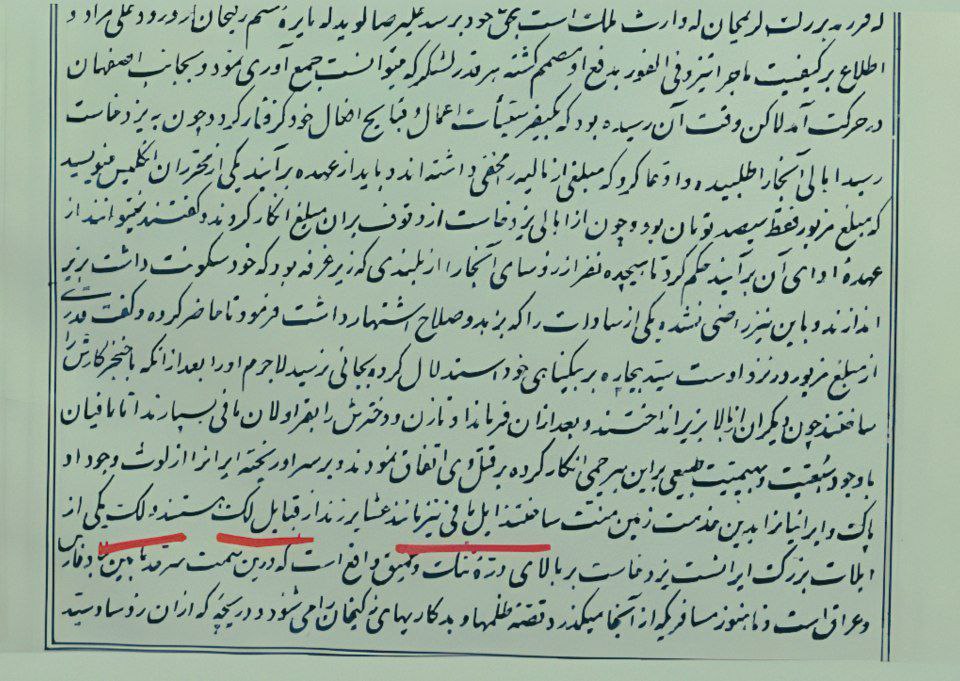 که قدر مه بزرگت کریمخان که وارث ملک است بحق خود برسد علیرضا گوید که نایره خشم زکیخان از ورود علی مراد و
اطلاع بر کیفیت ماجرا تیز و فی الفور بدفع او مصمم کشته هر قدر لشکر که میتوانست جمع آوری نمود و بجانب اصفهان
در حرکت آمد لاکن وقت آن رسیده بود که بکیفر سیئات اعمال و قبایح افعال خود گرفتار گردد چون به یزدخاست
رسید اهالی آنجا را طلبیده و ادعا کرد که مبلغی از مالیه را مخفی داشته اند و باید از عهده برآیند یکی از محرران انگلیس مینویسد
که مبلغ مزبور فقط سیصد تومان بود و چون از اهالی یزدخاست از وقوف بر ان مبلغ انکار کردند و گفتند نمیتوانند از
عهدهٔ ادای آن برآیند حکم کرد تا هیجده نفر از رؤسای آنجا را از بلندی که زیر غرفه بود که خود سکونت داشت بزیر
اندازند و باین نیز راضی نشده یکی از سادات را که بزهد و صلاح اشتهار داشت فرمود تا حاضر کرده و گفت قدری
از مبلغ مزبور در نزد اوست سید بیچاره بر بیگناهی خود استدلال کرده بجائی نرسید لاجرم او را بعد از انکه با خنجر کارش را
ساختند چون دیگران از بالا بزیر انداختند و بعد از ان فرمان داد تا زن و دخترش را بقراولان مافی بسپارند اما مافیان
با وجود سبعیت و بهیمیت طبیعی بر این بیرحمی انکار کرده بر قتل وی اتفاق نمودند و بر سر او ریخته ایران را از لوث وجود او
پاک و ایرانیان را بدین خدمت رهین منت ساختند ایل مافی نیز مانند عشایر زند از قبایل لک هستند و لک یکی از
ایلات بزرگ ایرانست یزدخاست بر بالای درهٔ تنگ و عمیق واقع است که درین سمت سرحد مابین فارس
و عراق است و تا هنوز مسافریکه از آنجا میگذرد قصه ظلمها و بدکاریهای زکیخان را می شنود و دریچه که از ان رؤسا و سید